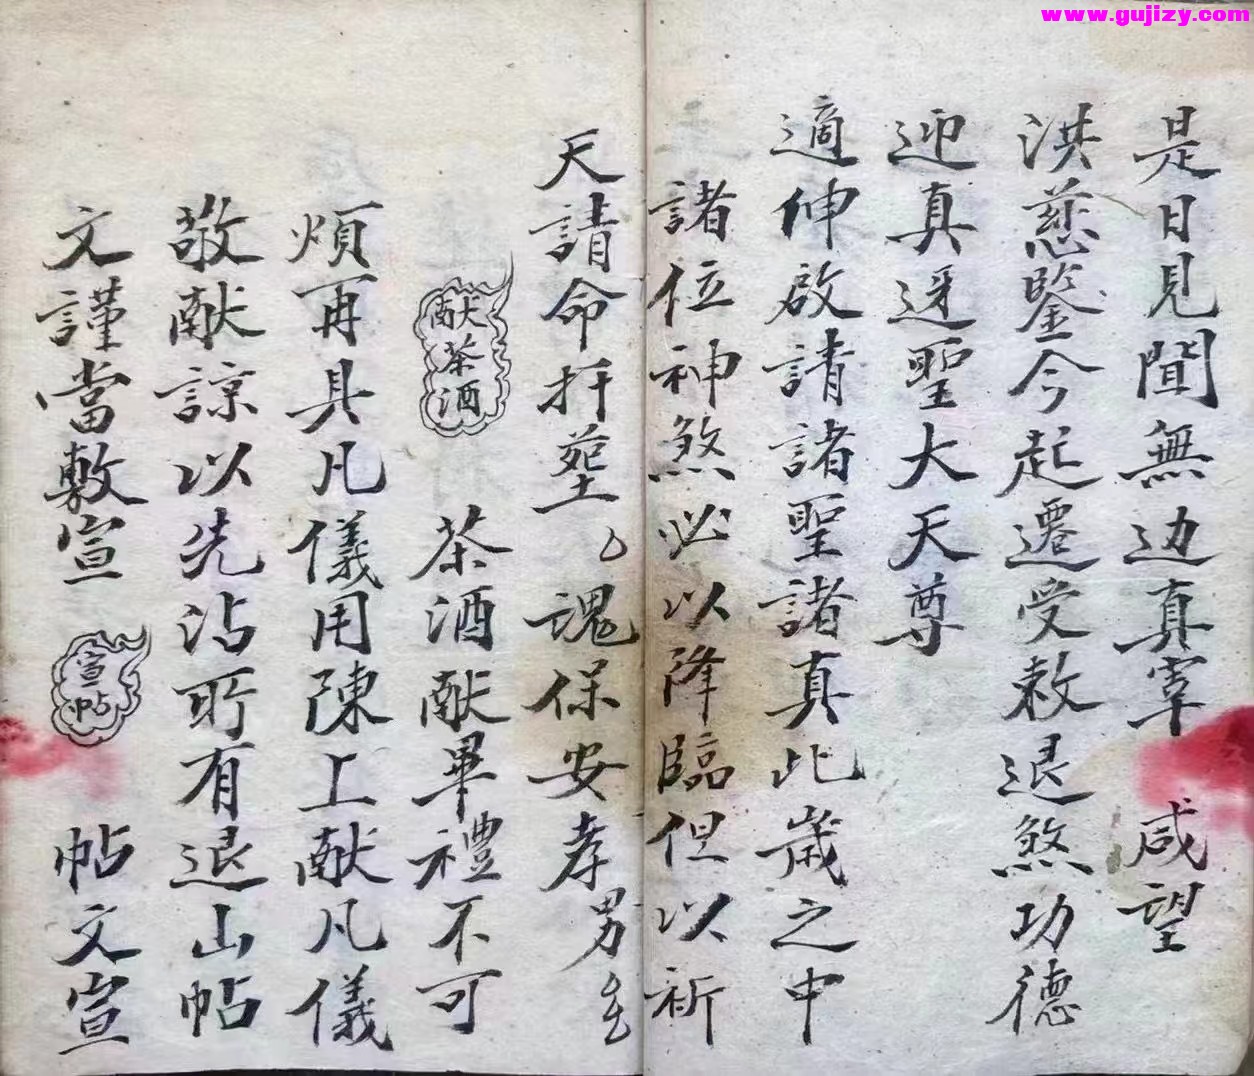 www.gujizy.com
是日見聞無边真宰 咸望
洪慈鑒今起遷受赦退煞功德
迎真迓聖大天尊
適伸啟請諸聖諸真此歲之中
諸位神煞必以降臨但以祈
天請命扦塟 魂保安孝男
献茶酒 茶酒献畢禮不可
煩再具凡儀用陳上献凡儀
敬献諒以先沾所有退山帖
文謹當敷宣 宣帖 帖文宣